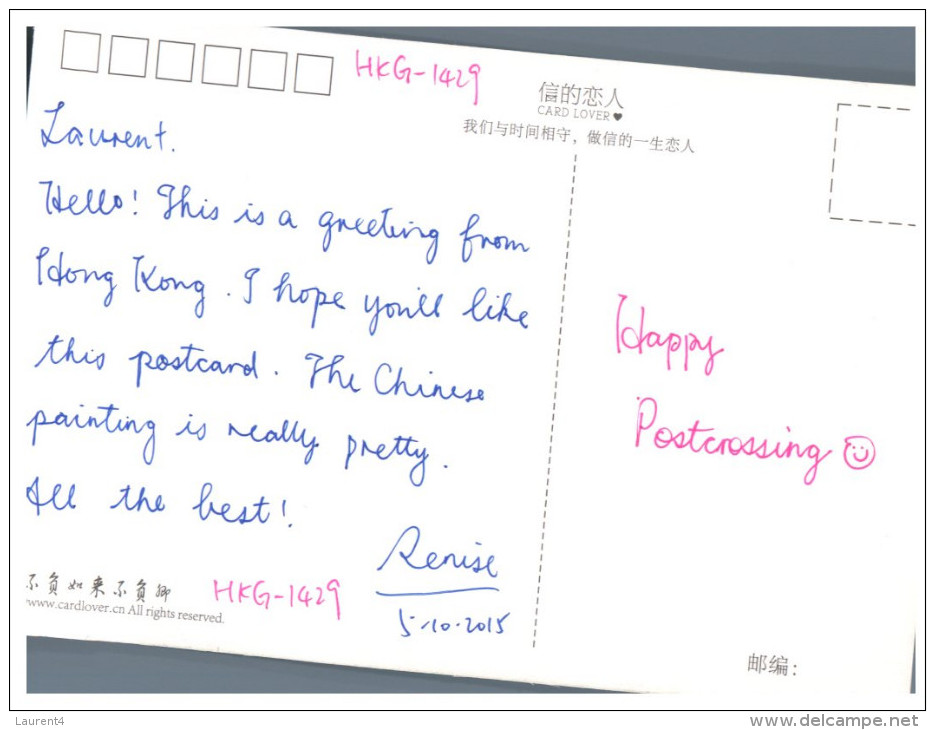 HKG-1429
信的恋人
CARD LOVER♥
我们与时间相守，做信的一生恋人
Laurent.
Hello! This is a greeting from
Hong Kong. I hope you'll like
this postcard. The Chinese
painting is really pretty.
All the best!
Renise
5.10.2015
Happy
Postcrossing ☺
不负如来不负卿
www.cardlover.cn All rights reserved.
HKG-1429
邮编：
Laurent4
www.delcampe.net